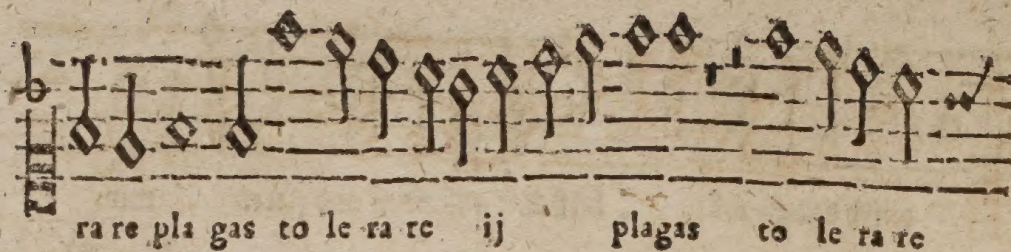 ra re pla gas to le ra re ij plagas to le ra re